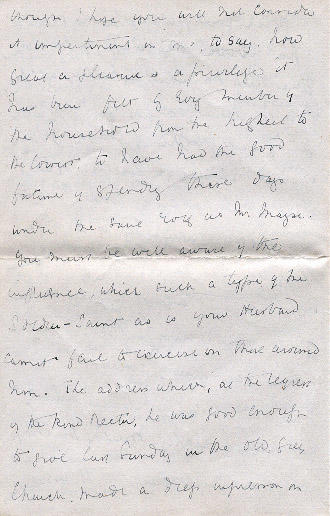 though I hope you will not consider
it impertinent in me, to say, how
great a pleasure & a privilege it
has been felt by every member of
the household from the highest to
the lowest to have had the good
fortune of spending these days
under the same roof as Mr. 
You must be well aware of the
influence, which such a type of the
Soldier-Saint as is your Husband
cannot fail to exercise on those around
him. The address which, at the request
of the kind Rector, he was good enough
to give last Sunday in the old grey
Church, made a deep impression on